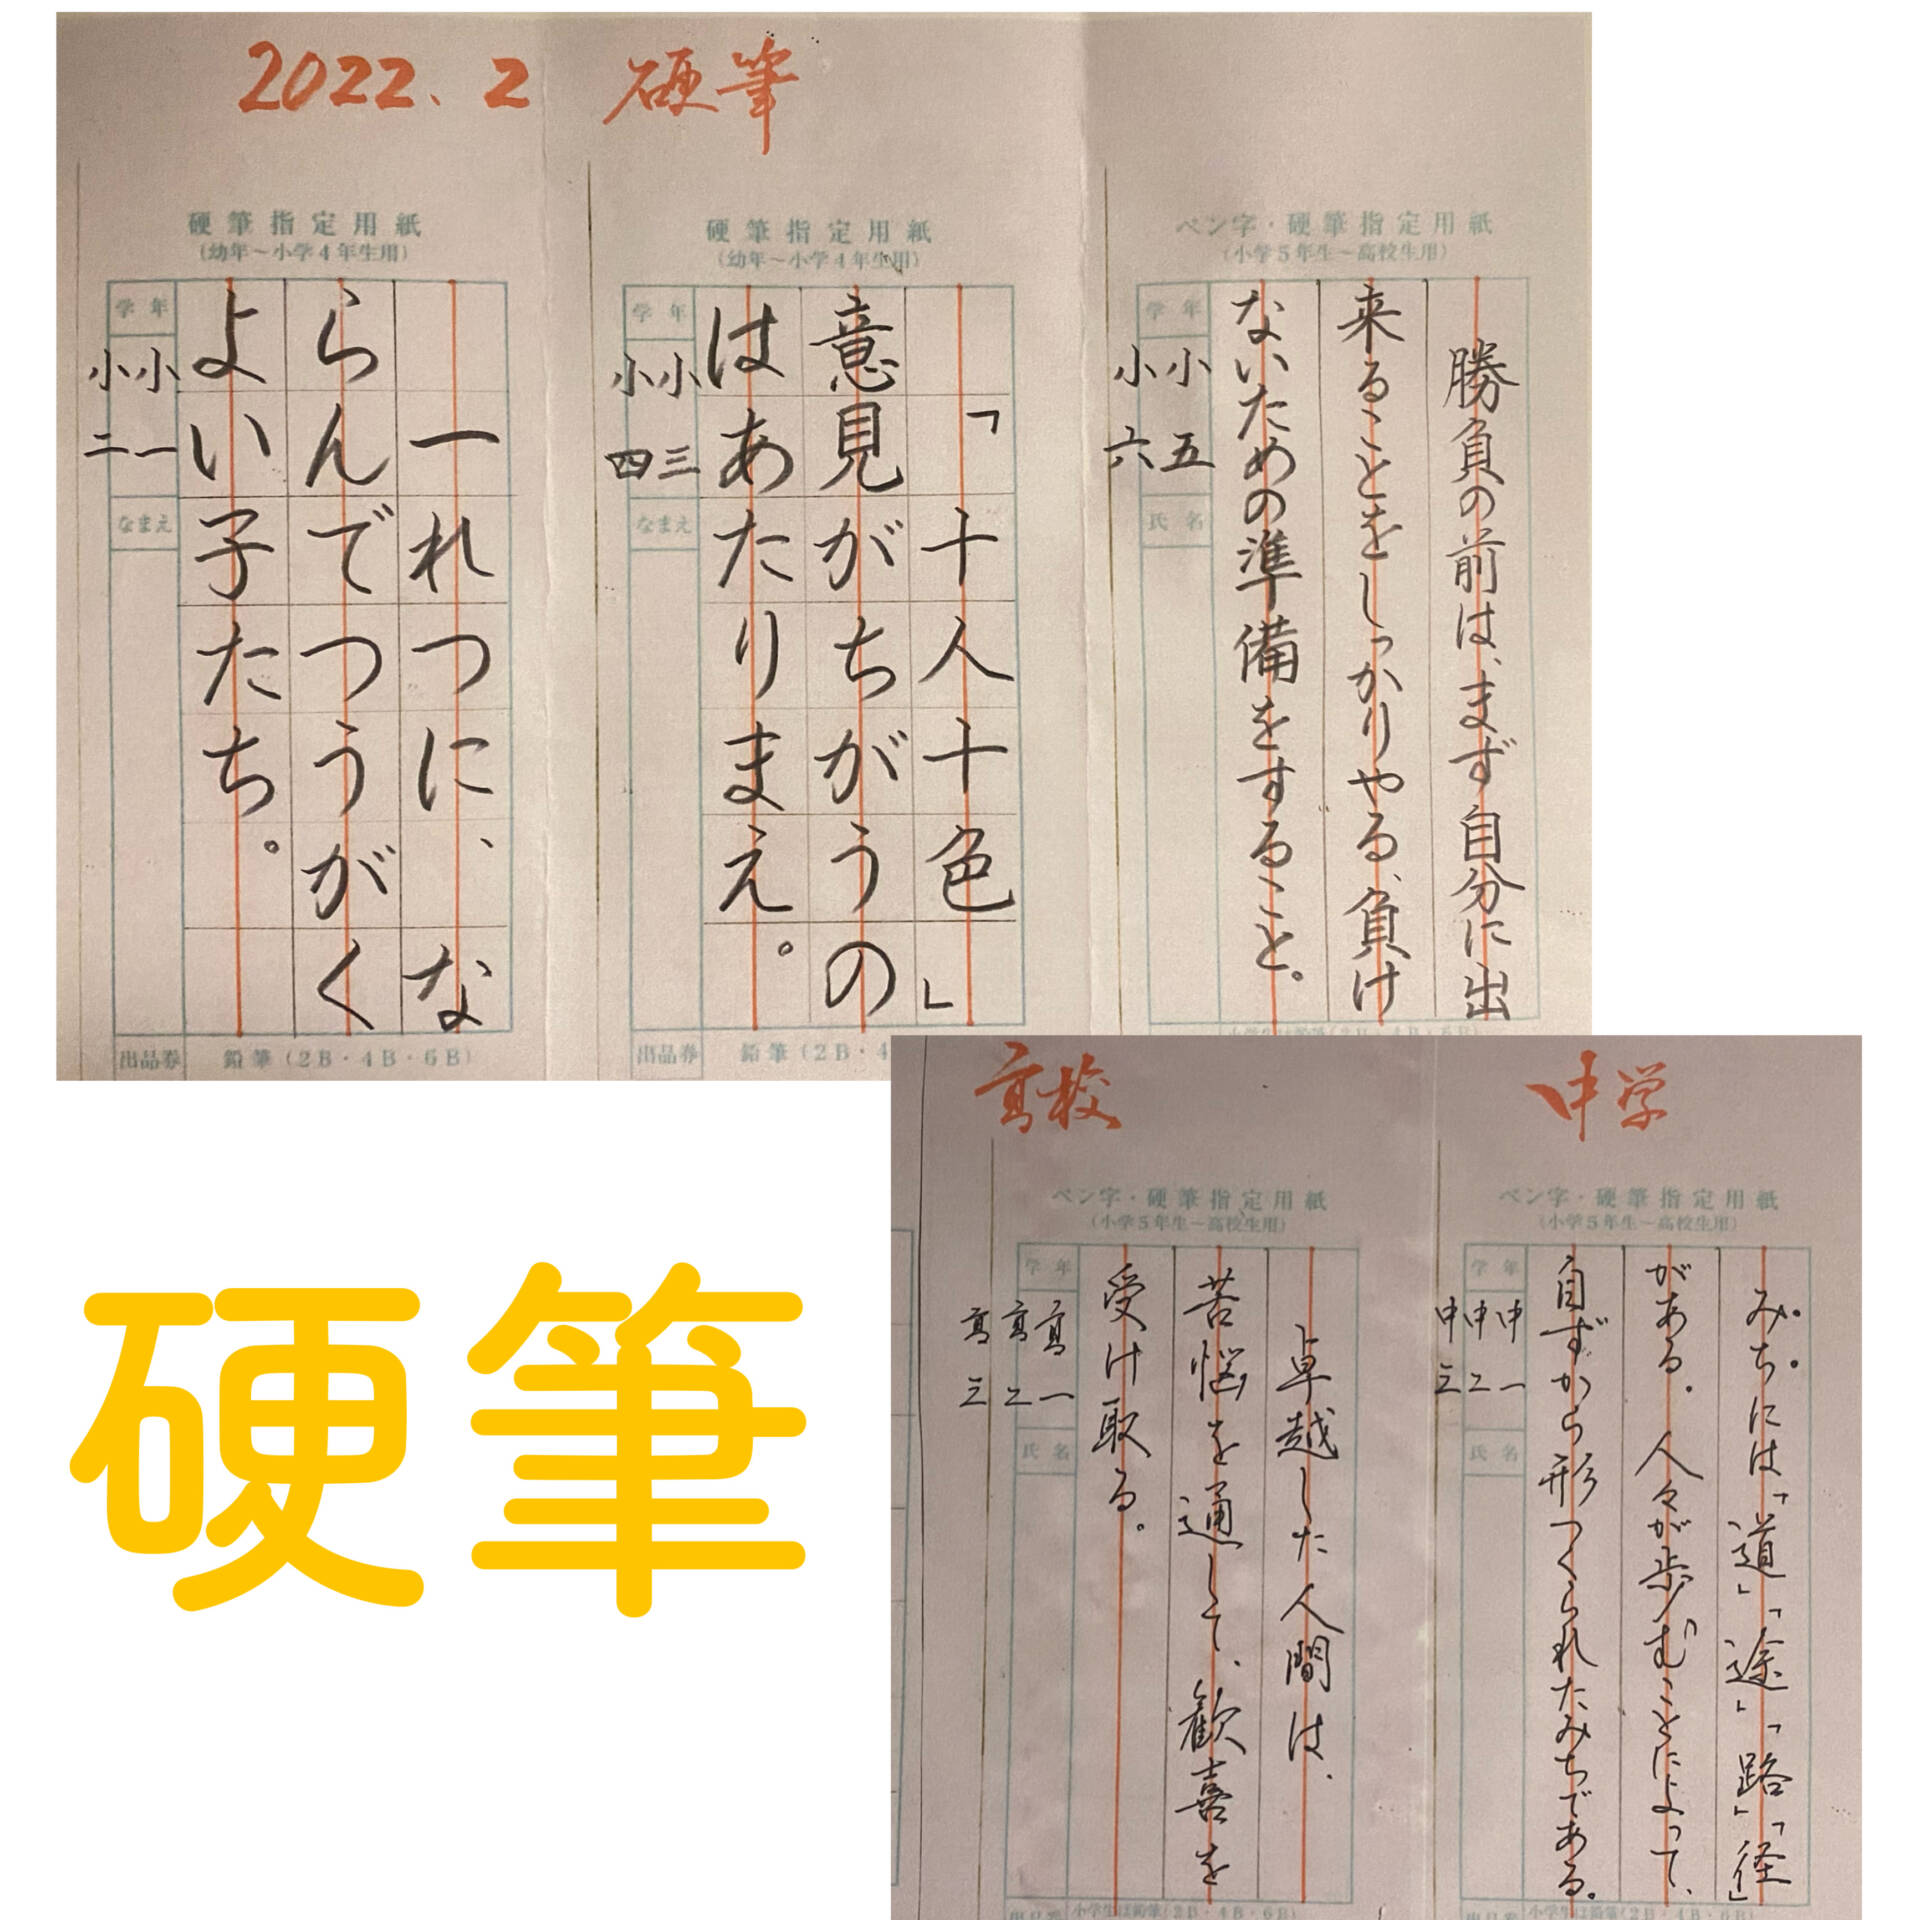 2022.2 硬筆
硬筆指定用紙
(幼年~小学4年生用)
一れつに、な
らんでつうがく
よい子たち。
学年
小一
小二
なまえ
出品券
鉛筆(2B・4B・6B)
硬筆指定用紙
(幼年~小学4年生用)
「十人十色」
意見がちがうの
はあたりまえ。
学年
小三
小四
なまえ
出品券
鉛筆(2B・4
ペン字・硬筆指定用紙
(小学5年生~高校生用)
勝負の前は、まず自分に出
来ることをしっかりやる、負け
ないための準備をすること。
学年
小五
小六
氏名
硬筆
中学
ペン字・硬筆指定用紙
(小学5年生~高校生用)
みちには「道」「途」「路」「径」
がある。人々が歩むことによって、
自ずから形つくられたみちである。
学年
中一
中二
中三
氏名
出品券
小学生は鉛筆(2B・4B・6B)
高校
ペン字・硬筆指定用紙
(小学5年生~高校生用)
卓越した人間は、
苦悩を通して、歓喜を
受け取る。
学年
高一
高二
高三
氏名
出品券
小学生は鉛筆(2B・4B・6B)